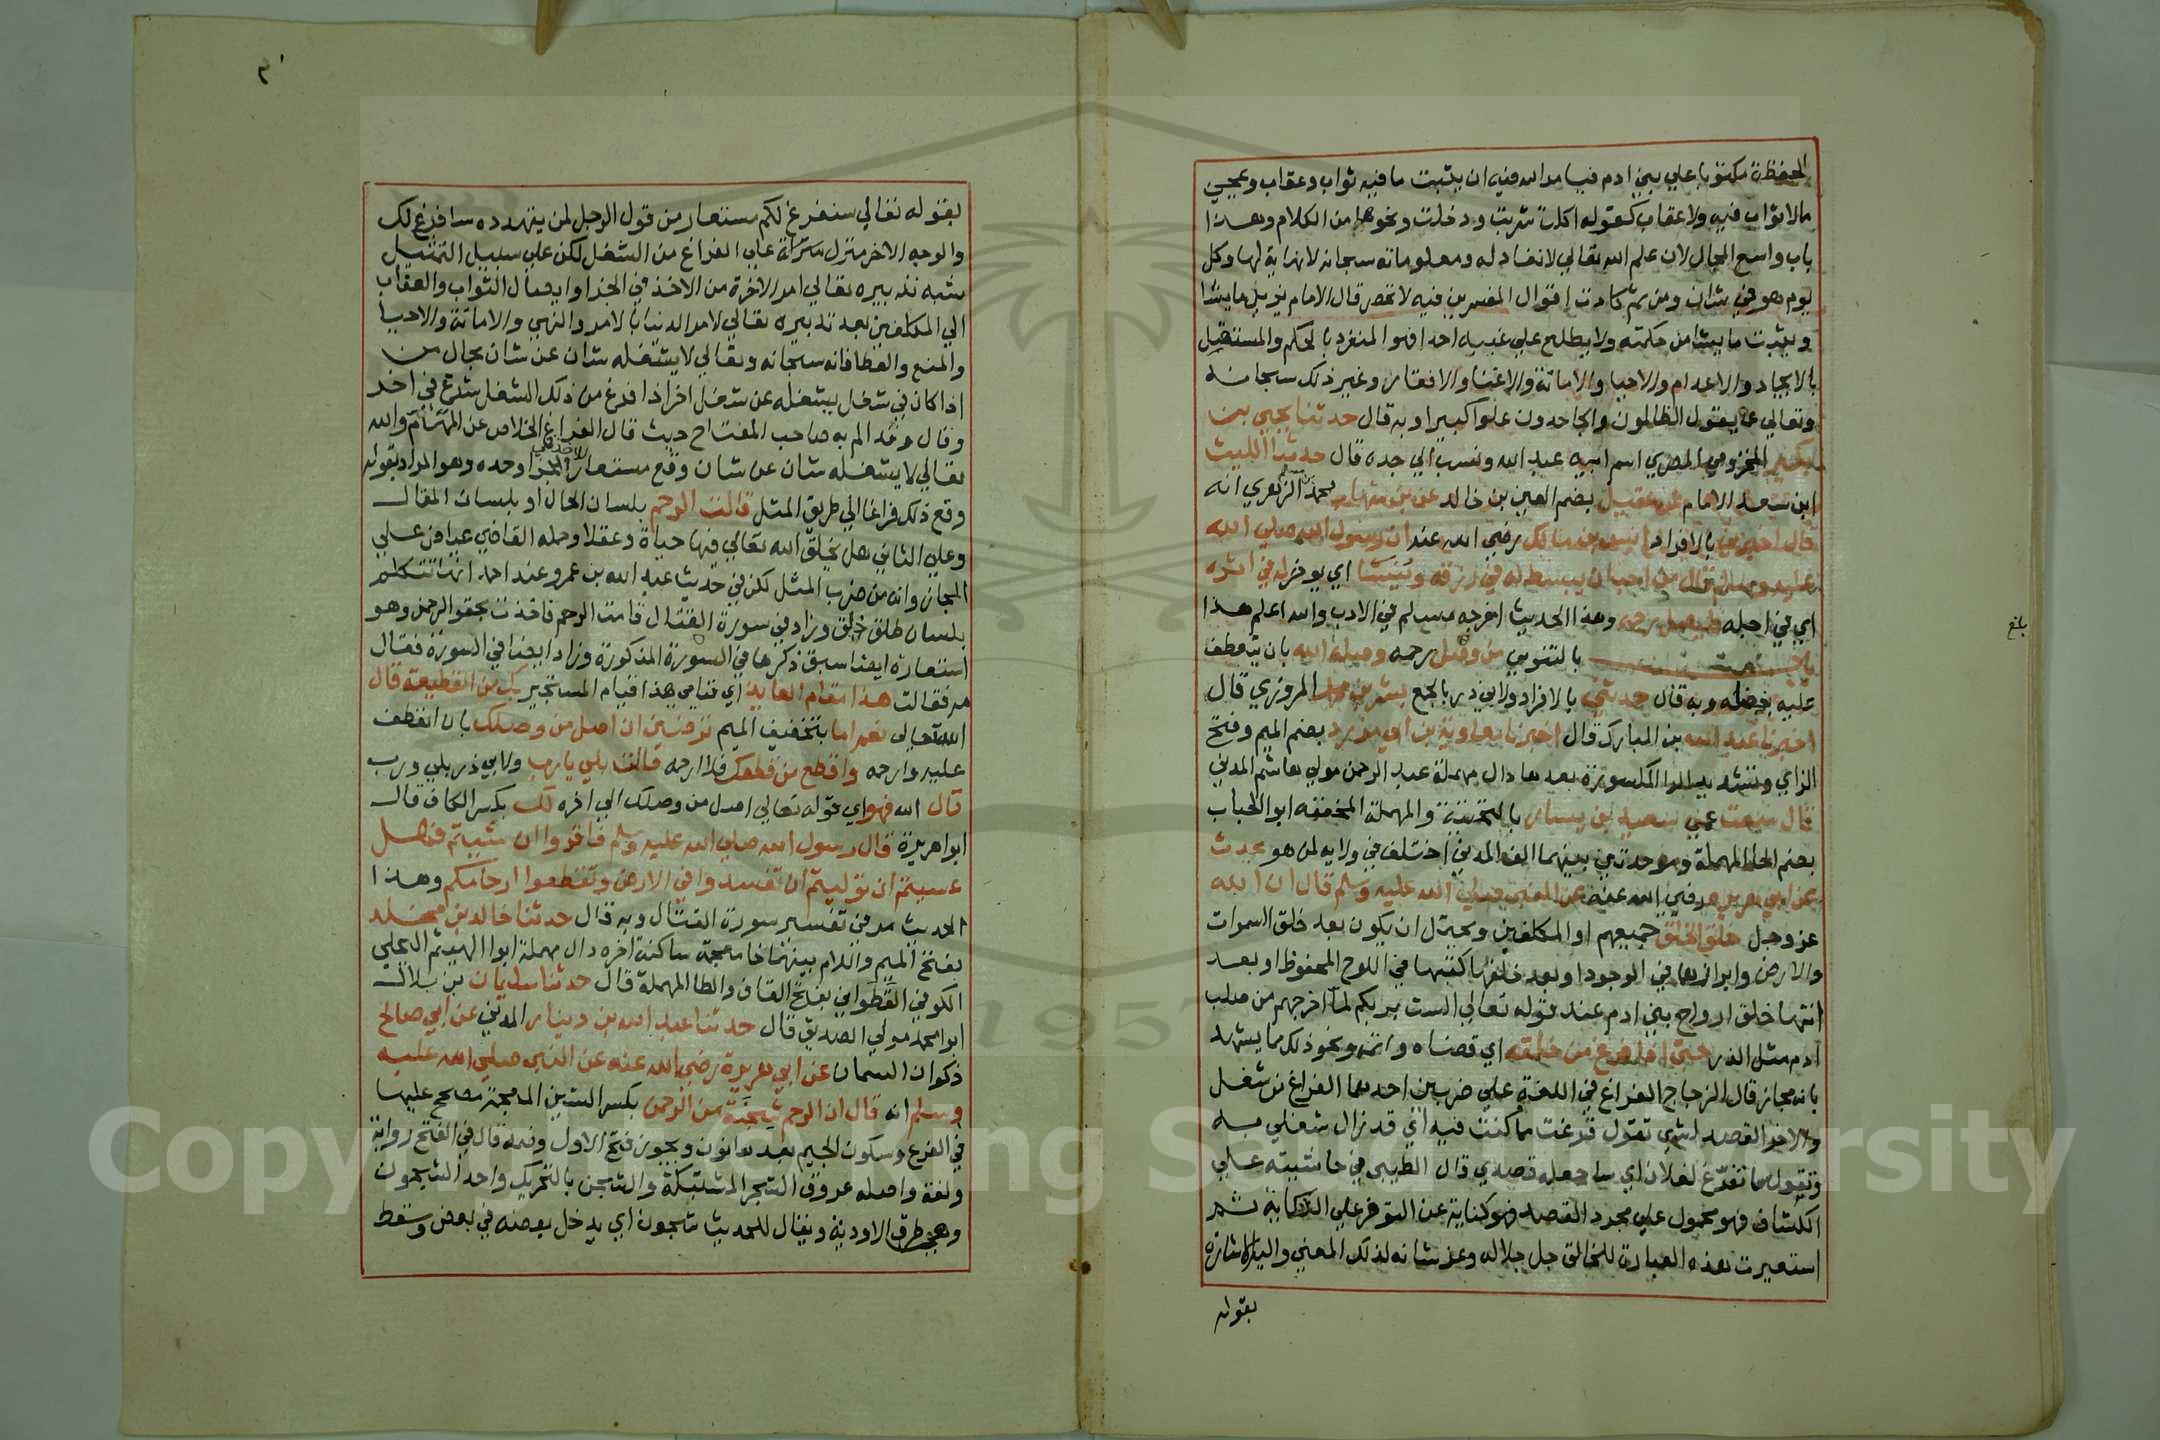 الحفظة مكتوبا علي بني ادم فيامر الله فيه ان يثبت ما فيه ثواب وعقاب ويمحي
مالا ثواب فيه ولا عقاب كقوله اكلت شربت ودخلت ونحوها من الكلام وهذا
باب واسع المجال لان علم الله تعالي لا نفاد له ومعلوماته سبحانه لا نهاية لها وكل
يوم هو في شان ومن ثم كادت اقوال المفسرين فيه لا تحصر قال الامام يزيل ما يشا
ويثبت ما يشا من حكمته ولا يطلع علي غيبه احد فهو المنفرد بالحكم والمستقل
بالايجاد والاعدام والاحيا والاماتة والاغنا والافقار وغير ذلك سبحانه
وتعالي عما يقول الظالمون والجاحدون علوا كبيرا وبه قال حدثنا يحيي بن
بكير المخزومي المصري اسم ابيه عبد الله ونسب الي جده قال حدثنا الليث
ابن سعد الامام عن عقيل بضم العين بن خالد عن بن شهاب محمد الزهري انه
قال اخبرني بالافراد انس بن مالك رضي الله عنه ان رسول الله صلي الله
عليه وسلم قال من احب ان يبسط له في رزقه وينسا اي يوخر له في اثره
اي في اجله فليصل رحمه وهذا الحديث اخرجه مسلم في الادب والله اعلم هذا
باب بالتنوين من وصل رحمه وصله الله بان يتعطف
عليه بفضله وبه قال حدثني بالافراد ولابي ذر بالجمع بشر بن محمد المروزي قال
اخبرنا عبد الله بن المبارك قال اخبرنا معاوية بن ابي مزرد بضم الميم وفتح
الزاي وتشديد الرا المكسورة بعدها دال مهملة عبد الرحمن مولي هاشم المدني
قال سمعت عمي سعيد بن يسار بالتحتية والمهملة المخففه ابو الحباب
بضم الحا المهملة وموحدتين بينهما الف المدني اختلف في ولايه لمن هو يحدث
عن ابي هريرة رضي الله عنه عن النبي صلي الله عليه وسلم قال ان الله
عز وجل خلق الخلق جميعهم او المكلفين ويحتمل ان يكون بعد خلق السموات
والارض وابرازها في الوجود او بعد خلقها كتبها في اللوح المحفوظ او بعد
انتها خلق ارواح بني ادم عند قوله تعالي الست بربكم لما اخرجهم من صلب
ادم مثل الذر حتي اذا فرغ من خلقه اي قضاه واتمه ونحو ذلك مما يشهد
بانه مجاز قال الزجاج الفراغ في اللغة علي ضربين احدهما الفراغ من شغل
والاخر القصد لشي تقول فرغت مما كنت فيه اي قد زال شغلي به
وتقول سا تفرغ لفلان اي سا جعله قصدي قال الطيبي في حاشيته علي
الكشاف فهو محمول علي مجرد القصد فهو كناية عن التوفر علي النكاية ثم
استعيرت هذه العبارة للخالق جل جلاله وعز شانه لذلك المعني واليه الاشارة
بقوله
بلغ
بقوله تعالي سنفرغ لكم مستعار من قول الرجل لمن يتهدده سا فرغ لك
والوجه الاخر منزل علي الفراغ من الشغل لكن علي سبيل التمثيل
شبه تدبيره تعالي امر الاخرة من الاخذ في الجزا وايصال الثواب والعقاب
الي المكلفين بعد تدبيره تعالي لامر الدنيا بالامر والنهي والاماتة والاحيا
والمنع والعطا فانه سبحانه وتعالي لا يشغله شان عن شان بحال من
اذا كان في شغل يشغله عن شغل اخر اذا فرغ من ذلك الشغل شرع في اخر
وقال وقد الم به صاحب المفتاح حيث قال الفراغ الخلاص عن المهام والله
تعالي لا يشغله شان عن شان وقع مستعارا للاخذ في الجزا وحده وهو المراد بقوله
وقع ذلك فراغا الي طريق المثل قالت الرحم بلسان الحال او بلسان المقال
وعلي الثاني هل يخلق الله تعالي فيها حياة وعقلا وحمله القاضي عياض علي
المجاز وانه من ضرب المثل لكن في حديث عبد الله بن عمرو عند احمد انها تتكلم
بلسان طلق ذلق وزاد في سورة القتال قامت الرحم فاخذت بحقو الرحمن وهو
استعارة ايضا سبق ذكرها في السورة المذكورة وزاد ايضا في السورة فقال
مه فقالت هذا مقام العايذ اي قيامي هذا قيام المستجير بك من القطيعة قال
الله تعالي نعم اما بتخفيف الميم ترضين ان اصل من وصلك بان اتعطف
عليه وارحمه واقطع من قطعك فلا ارحمه قالت بلي يا رب ولابي ذر بلي ورب
قال الله فهو اي قوله تعالي اصل من وصلك الي اخره لك بكسر الكاف قال
ابو هريرة قال رسول الله صلي الله عليه وسلم فاقروا ان شيتم فهل
عسيتم ان توليتم ان تفسدوا في الارض وتقطعوا ارحامكم وهذا
الحديث مر في تفسير سورة القتال وبه قال حدثنا خالد بن مخلد
بفتح الميم واللام بينهما خا معجمة ساكنة اخره دال مهملة ابو الهيثم البجلي
الكوفي القطواني بفتح القاف والطا المهملة قال حدثنا سليمان بن بلال
ابو محمد مولي الصديق قال حدثنا عبد الله بن دينار المدني عن ابي صالح
ذكوان السمان عن ابي هريرة رضي الله عنه عن النبي صلي الله عليه
وسلم انه قال ان الرحم شجنة من الرحمن بكسر الشين المعجمة مصحح عليها
في الفرع وسكون الجيم بعدها نون ويجوز فتح الاول وضمه قال في الفتح رواية
ولغة واصله عروق الشجر المشتبكة والشجن بالتحريك واحد الشجون
وهي طرق الاودية ويقال للحديث شجون اي يدخل بعضه في بعض وسقط